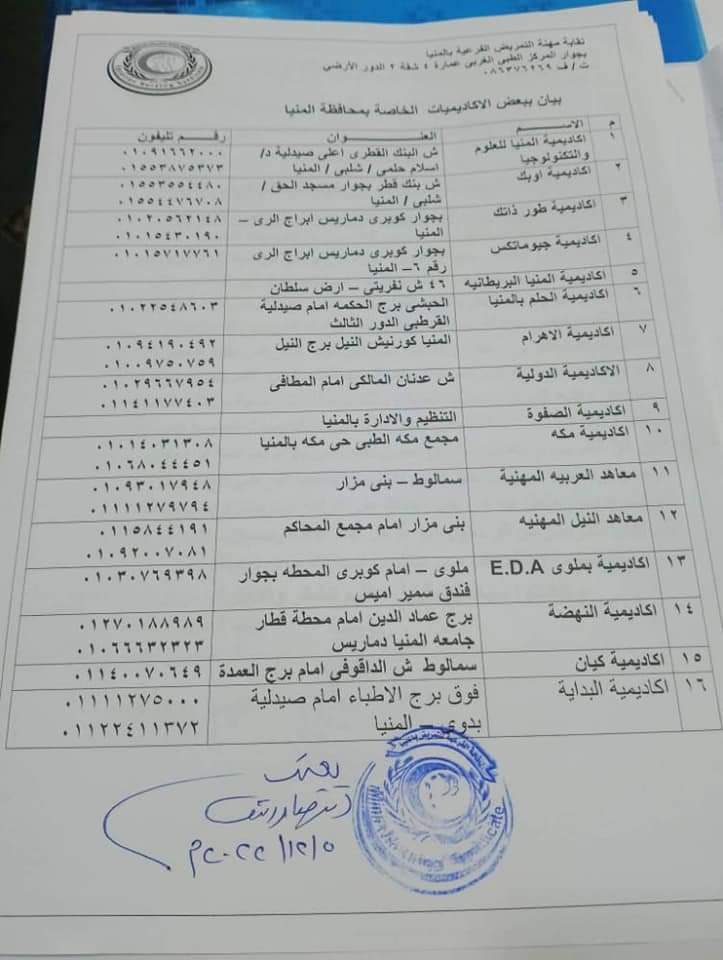 نقابة مهنة التمريض الفرعية بالمنيا
بجوار المركز الطبى الغربى عمارة ٤ شقة ٢ الدور الأرضي
ت / ف ٠٨٦٣٧٦٢٦٩
بيان ببعض الاكاديميات الخاصة بمحافظة المنيا
م الاسم العنوان رقم تليفون
١ اكاديمية المنيا للعلوم ش البنك القطرى اعلى صيدلية د/ ٠١٠٩١٦٦٢٠٠٠
والتكنولوجيا اسلام حلمى / شلبى / المنيا ٠١٥٥٣٨٧٥٣٧٣
٢ اكاديمية اوبك ش بنك قطر بجوار مسجد الحق / ٠١٥٥٣٥٥٤٤٨٠
شلبى / المنيا ٠١٥٥٤٤٧٦٧٠٨
٣ اكاديمية طور ذاتك بجوار كوبرى دماريس ابراج الرى – ٠١٠٢٠٥٦٢١٤٨
المنيا ٠١٠١٥٤٣٠١٩٠
٤ اكاديمية جيوماتكس بجوار كوبرى دماريس ابراج الرى ٠١٠١٥٧١٧٧٦١
رقم ٦– المنيا
٥ اكاديمية المنيا البريطانيه ٤٦ ش نفريتي – ارض سلطان
٦ اكاديمية الحلم بالمنيا الحبشى برج الحكمه امام صيدلية ٠١٠٢٢٥٤٨٦٠٣
القرطبى الدور الثالث
٧ اكاديمية الاهرام المنيا كورنيش النيل برج النيل ٠١٠٩٤١٩٠٤٩٢
٠١٠٠٩٧٥٠٧٥٩
٨ الاكاديمية الدولية ش عدنان المالكى امام المطافى ٠١٠٢٩٦٦٧٩٥٤
٠١١٤١١٧٧٤٠٣
٩ اكاديمية الصفوة التنظيم والادارة بالمنيا
١٠ اكاديمية مكه مجمع مكه الطبى حى مكه بالمنيا ٠١٠١٤٠٣١٣٠٨
٠١٠٦٨٠٤٤٤٥١
١١ معاهد العربيه المهنية سمالوط – بنى مزار ٠١٠٩٣٠١٧٩٤٨
٠١١١١٢٧٩٧٩٤
١٢ معاهد النيل المهنيه بنى مزار امام مجمع المحاكم ٠١١٥٨٤٤١٩١
٠١٠٩٢٠٠٧٠٨١
١٣ اكاديمية بملوى E.D.A ملوى – امام كوبرى المحطه بجوار ٠١٠٣٠٧٦٩٣٩٨
فندق سمير اميس
١٤ اكاديمية النهضة برج عماد الدين امام محطة قطار ٠١٢٧٠١٨٨٩٨٩
جامعه المنيا دماريس ٠١٠٦٦٦٣٢٣٢٣
١٥ اكاديمية كيان سمالوط ش الداقوفى امام برج العمدة ٠١١٤٠٠٧٠٦٤٩
١٦ اكاديمية البداية فوق برج الاطباء امام صيدلية ٠١١١١٢٧٥٠٠٠
بدوى – المنيا ٠١١٢٢٤١١٣٧٢
Nursing Syndicate
٢٠٢٢/١٢/٥م